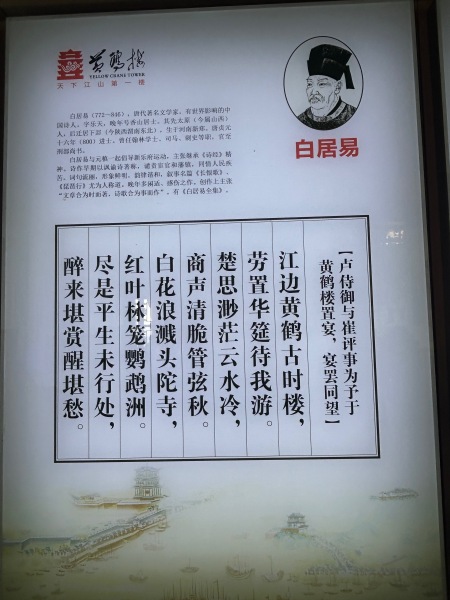 黄鹤楼
YELLOW CRANE TOWER
天下江山第一楼
白居易（772—846），唐代著名文学家，有世界影响的中
国诗人，字乐天，晚年号香山居士，其先太原（今属山西）
人，后迁居下邽（今陕西渭南东北），生于河南新郑。唐贞元
十六年（800）进士，曾任翰林学士、司马、刺史等职，官至
刑部尚书。
白居易与元稹一起倡导新乐府运动，主张继承《诗经》精
神，诗作早期以讽谕诗著称，谴责贪官和藩镇，同情人民疾
苦。词句流丽，形象鲜明，韵律谐和，叙事名篇《长恨歌》、
《琵琶行》尤为人称道。晚年多闲适、感伤之作。创作上主张
“文章合为时而著，诗歌合为事而作”。有《白居易全集》。
白居易
【卢侍御与崔评事为予于
黄鹤楼置宴，宴罢同望】
江边黄鹤古时楼，
劳置华筵待我游。
楚思渺茫云水冷，
商声清脆管弦秋。
白花浪溅头陀寺，
红叶林笼鹦鹉洲。
尽是平生未行处，
醉来堪赏醒堪愁。